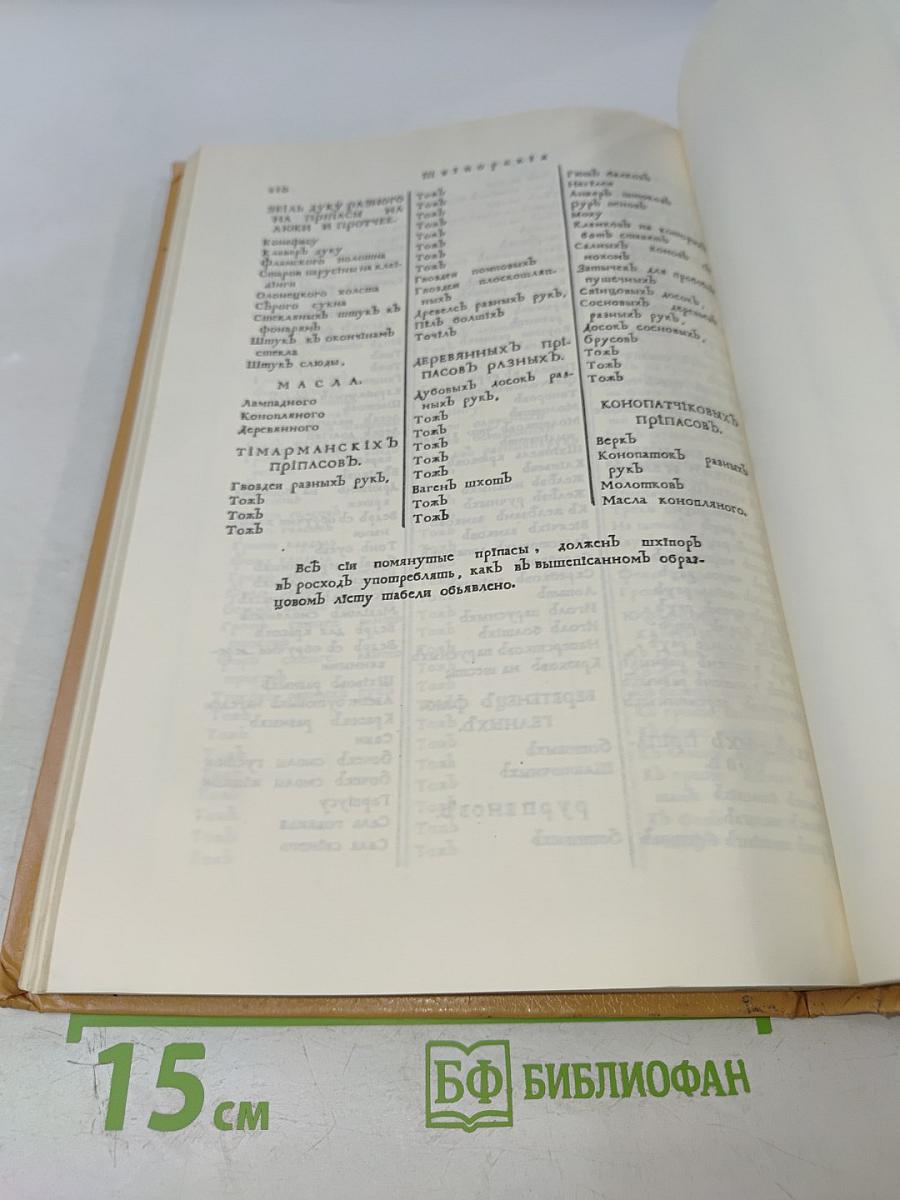 ЗЕІЛЬ ДУКУ РАЗНОГО
НА ПРІПАСЫ НА
ЛЮКИ И ПРОТЧЕЕ.
Конефасу
Клаверъ дуку
Фламского полотна
Старои парусины на клеі-
дінги
Олонецкого холста
Сѣрого сукна
Стекляныхъ штукъ къ
фонарямъ
Штукъ къ окончінамъ
стекла
Штукъ слюды,
МАСЛА.
Лампадного
Конопляного
Деревянного
ТІМАРМАНСКІХЪ
ПРІПАСОВЪ.
Гвоздеи разныхъ рукъ,
Тожъ
Тожъ
Тожъ
Тожъ
Тожъ
Тожъ
Тожъ
Тожъ
Тожъ
Тожъ
Тожъ
Гвоздеи понтовыхъ
Гвоздеи плоскошляп-
ныхъ
Древелсъ разныхъ рукъ,
Пілъ болшіхъ
Точілъ
ДЕРЕВЯННЫХЪ ПРІ-
ПАСОВЪ РАЗНЫХЪ.
Дубовыхъ досокъ раз-
ныхъ рукъ,
Тожъ
Тожъ
Тожъ
Тожъ
Тожъ
Вагенъ шхотъ
Тожъ
Тожъ
Нагелеи
Моху
Кляпковъ на которыхъ
Затычекъ для
пушечныхъ
Свінцовыхъ досокъ,
Сосновыхъ деревьевъ
разныхъ рукъ,
Досокъ сосновыхъ,
брусовъ
Тожъ
Тожъ
Тожъ
КОНОПАТЧІКОВЫХЪ
ПРІПАСОВЪ.
Веркъ
Конопатокъ разныхъ
рукъ
Молотковъ
Масла конопляного.
Всѣ сіи помянутые пріпасы, долженъ шхіпоръ
въ росходъ употреблять, какъ въ вышепісанномъ образ-
цовомъ лісту табели объявлено.
15 см
БФ БИБЛИОФАН